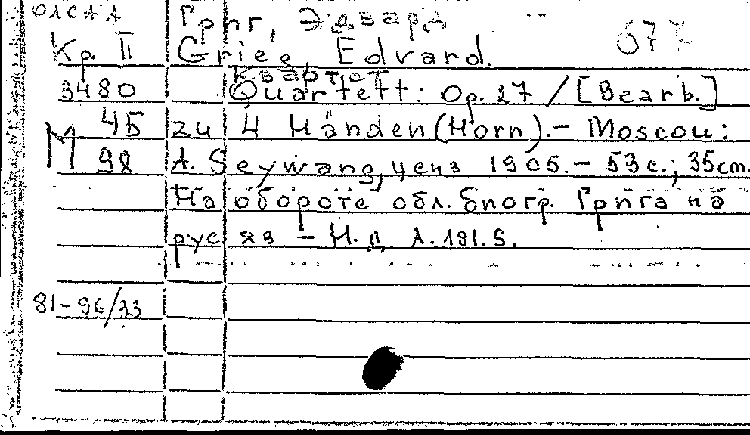 ОЛСАА Григ, Эдвард
Кр. II Grieg Edvard. 677
Квартет
3480 Quartett: Op. 27 / [Bearb.]
45 zu 4 Händen (Horn). – Moscou:
М 98 A. Seywang, ценз 1905. – 53 с.; 35cm.
На обороте обл. биогр. Грига на
рус яз – Н. д. A.191.S.
81-96/33